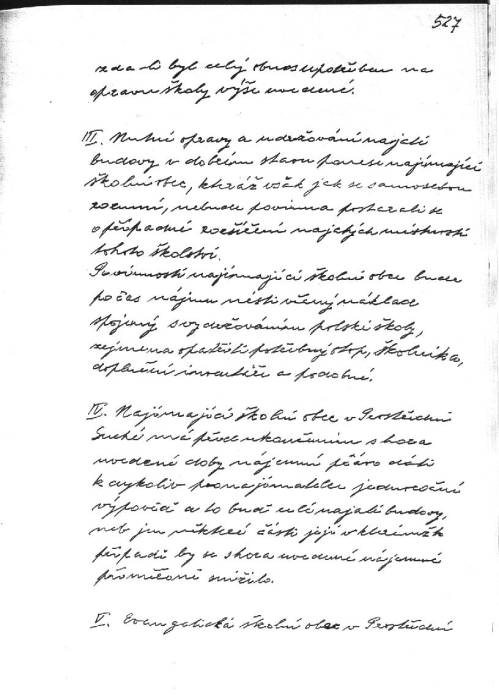 527
zda-li byl celý obnos upotřeben na
opravu školy výše uvedené.
III. Nutné opravy a udržování najaté
budovy v dobrém stavu ponese najímající
školní obec, kteráž však jak se samosebou
rozumí, nebude povinna postarati se
o případné rozšíření najatých místností
tohoto školství.
Povinností najímající školní obce bude
počas nájmu nésti věcný náklad
spojený s vydržováním polské školy,
zejmena opatřiti potřebný otop, školníka,
doplnění inventáře a podobně.
IV. Najímající školní obec v Prostřední
Suché má před ukončením shora
uvedené doby nájemní právo dáti
kdykoliv pronajímatelce jednoroční
výpověď a to buď z celé najaté budovy,
neb jen některé části její v kterémžto
případě by se shora uvedené nájemné
přiměřeně snížilo.
V. Evangelická školní obec v Prostřední